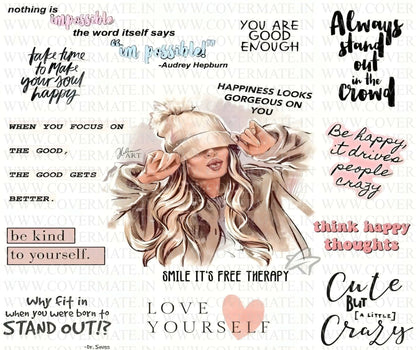 nothing is
impossible
the word itself says
"im possible!"
-Audrey Hepburn
YOU ARE
GOOD
ENOUGH
Always
stand
out
in the
Crowd
take time
to make
your soul
happy
HAPPINESS LOOKS
GORGEOUS ON
YOU
WHEN YOU FOCUS ON
THE GOOD,
THE GOOD GETS
BETTER.
Be happy,
it drives
people
crazy
be kind
to yourself.
think happy
thoughts
SMILE IT'S FREE THERAPY
Why fit in
when you were born to
STAND OUT!?
-Dr. Seuss
LOVE
YOURSELF
Cute
BUT
[A LITTLE]
Crazy